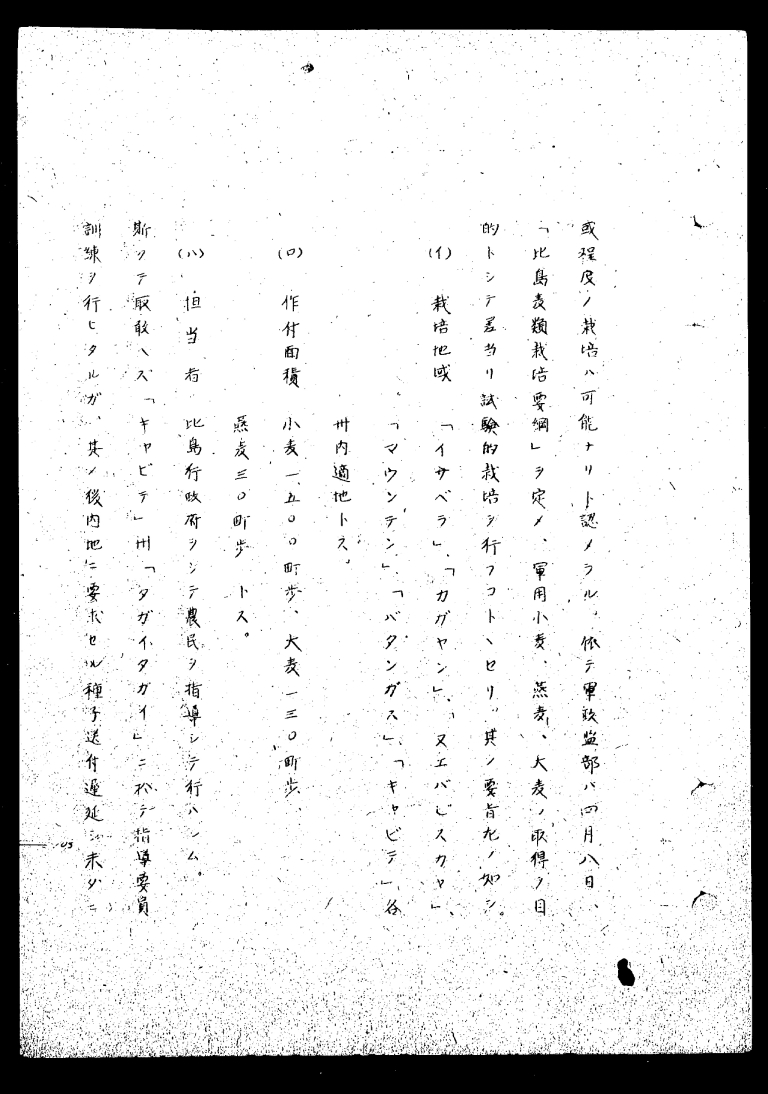 或程度ノ栽培ハ可能ナリト認メラル、依テ軍政監部ハ四月八日、
「比島麦類栽培要綱」ヲ定メ、軍用小麦、燕麦、大麦ノ取得ヲ目
的トシテ差当リ試験的栽培ヲ行フコトヽセリ。其ノ要旨左ノ如シ。
(イ) 栽培地域 「イサベラ」、「カガヤン」、「ヌエバビスカヤ」、
「マウンテン」、「バタンガス」、「キャビテ」各
州内適地トス。
(ロ) 作付面積 小麦一、五〇〇町歩、大麦一三〇町歩、
燕麦三〇町歩 トス。
(ハ) 担当者 比島行政府ヲシテ農民ヲ指導シテ行ハシム。
斯クテ取敢ヘズ「キャビテ」州「タガイタガイ」ニ於テ指導要員
訓練ヲ行ヒタルガ、其ノ後内地ニ要求セル種子送付遅延シ未ダニ